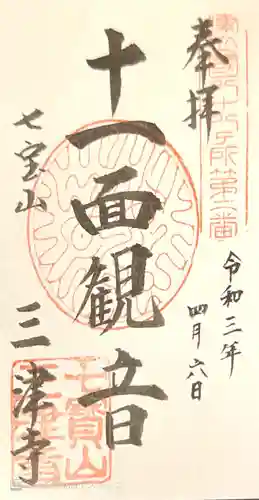 奉拝
令和三年
四月六日
十一面観音
七宝山
三津寺
七寳山
三津寺